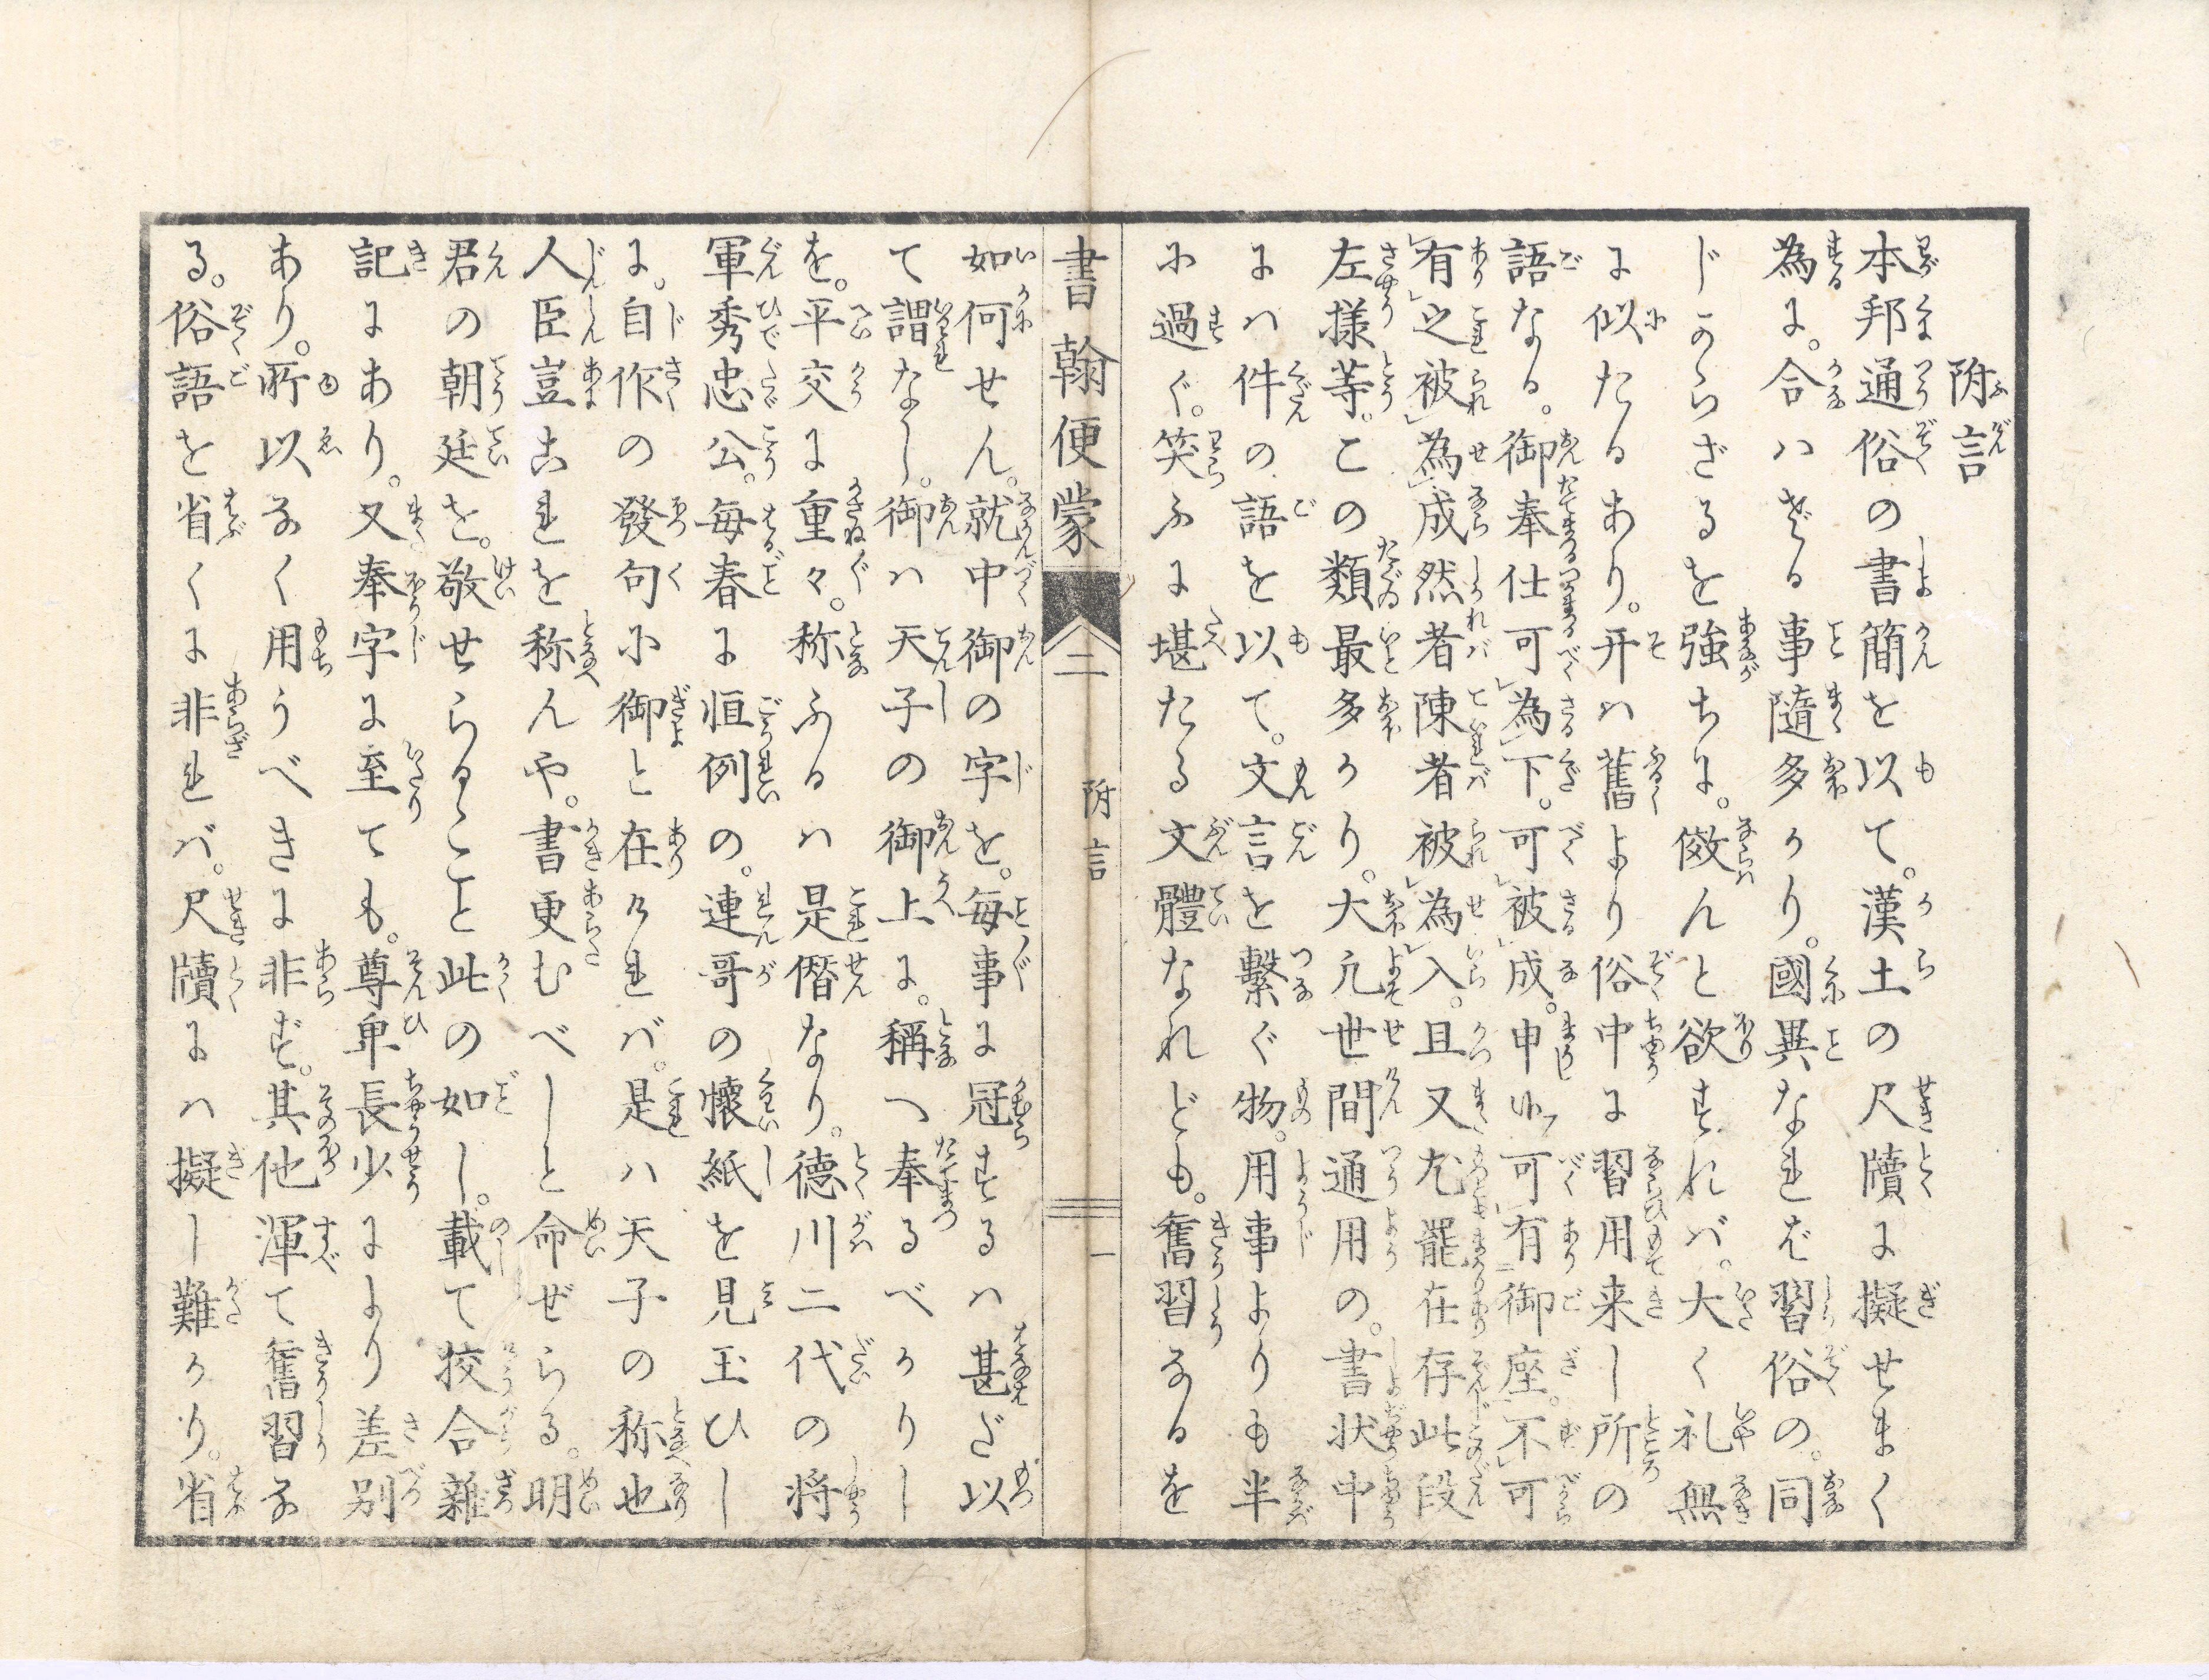 附言
本邦通俗の書簡を以て。漢土の尺牘に擬せまく
為に。合ハざる事随多かり。國異なれば習俗の。同
じからざるを強ちに。傚んと欲すれバ。大く礼無
に似たるあり。开ハ舊より俗中に習用来し所の
語なる。御奉仕可為下。可被成。申りフ可有御座。不可
有之被為成然者陳者被為入。且又尤罷在存此段
左様等。この類最多かり。大凢世間通用の。書状中
にハ件の語を以て。文言を繋ぐ物。用事よりも半
に過ぐ。笑ふに堪たる文體なれども。舊習なるを
書翰便蒙 二 附言 一
如何せん。就中御の字を。毎事に冠するハ甚だ以
て謂なし。御ハ天子の御上に。稱へ奉るべかりし
を。平交に重々。称ふるハ是僭なり。德川二代の将
軍秀忠公。毎春に恒例の。連哥の懐紙を見玉ひし
に。自作の發句に御と在けれバ。是ハ天子の称也
人臣豈これを称んや。書更むべしと命ぜらる。明
君の朝廷を。敬せらるゝこと此の如し。載て挍合雜
記にあり。又奉字に至ても。尊卑長少により差別
あり。所以なく用うべきに非ず。其他渾て舊習な
る。俗語を省くに非れバ。尺牘にハ擬し難かり。省